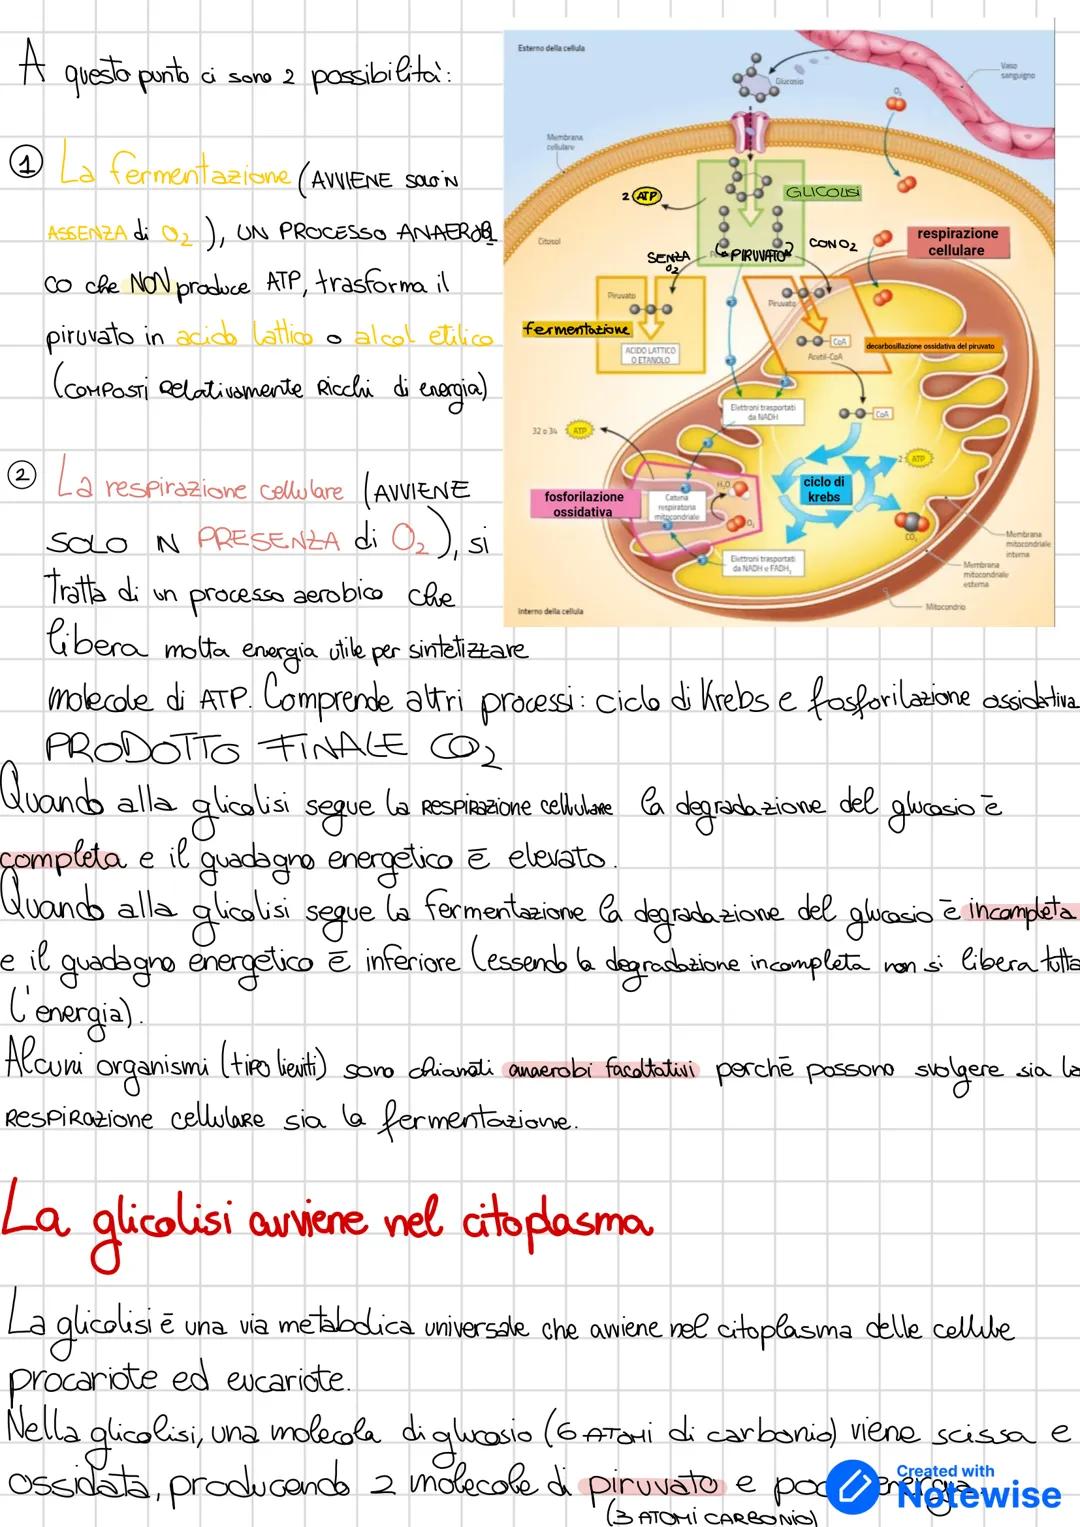 A questo punto ci sono 2 possibilità:
1 La fermentazione (AVVIENE SOLO IN
ASSENZA di O2), UN PROCESSO ANAEROBI
CO che NON produce ATP, trasforma il
piruvato in acido lattico o alcol etilico
(COMPOSTI Relativamente Ricchi di energia)
2 La respirazione cellulare (AVVIENE
SOLO IN PRESENZA di O2), si
Tratta di un processo aerobico che
libera molta energia utile per sintetizzare
molecole di ATP. Comprende altri processi: ciclo di Krebs e fosforilazione ossidativa
PRODOTTO FINALE CO2
Esterno della cellula
Vaso
sanguigno
Glucosio
O2
Membrana
cellulare
2 ATP
GLICOLISI
Citosol
SENZA
O2
PIRUVATO
CON O2
respirazione
cellulare
Piruvato
Piruvato
fermentazione
ACIDO LATTICO
O ETANOLO
CoA
Acetil-CoA
decarbossilazione ossidativa del piruvato
Elettroni trasportati
da NADH
CoA
32 o 34 ATP
2 ATP
ciclo di
krebs
fosforilazione
ossidativa
Catena
respiratoria
mitocondriale
H2O
O2
CO2
Elettroni trasportati
da NADH e FADH2
Membrana
mitocondriale
interna
Membrana
mitocondriale
esterna
Mitocondrio
Interno della cellula
Quando alla glicolisi segue la RESPIRAZIONE cellulare la degradazione del glucosio è
completa e il guadagno energetico è elevato.
Quando alla glicolisi segue la fermentazione la degradazione del glucosio è incompleta
e il guadagno energetico è inferiore (essendo la degradazione incompleta non si libera tutta
l'energia).
Alcuni organismi (tipo lieviti) sono chiamati anaerobi facoltativi perchè possono svolgere sia la
RESPIRAZIONE cellulare sia la fermentazione.
La glicolisi avviene nel citoplasma
La glicolisi è una via metabolica universale che avviene nel citoplasma delle cellule
procariote ed eucariote.
Nella glicolisi, una molecola di glucosio (6 ATOMI di carbonio) viene scissa e
ossidata, producendo 2 molecole di piruvato e poca energia.
(3 ATOMI CARBONIO)
Created with
Notewise